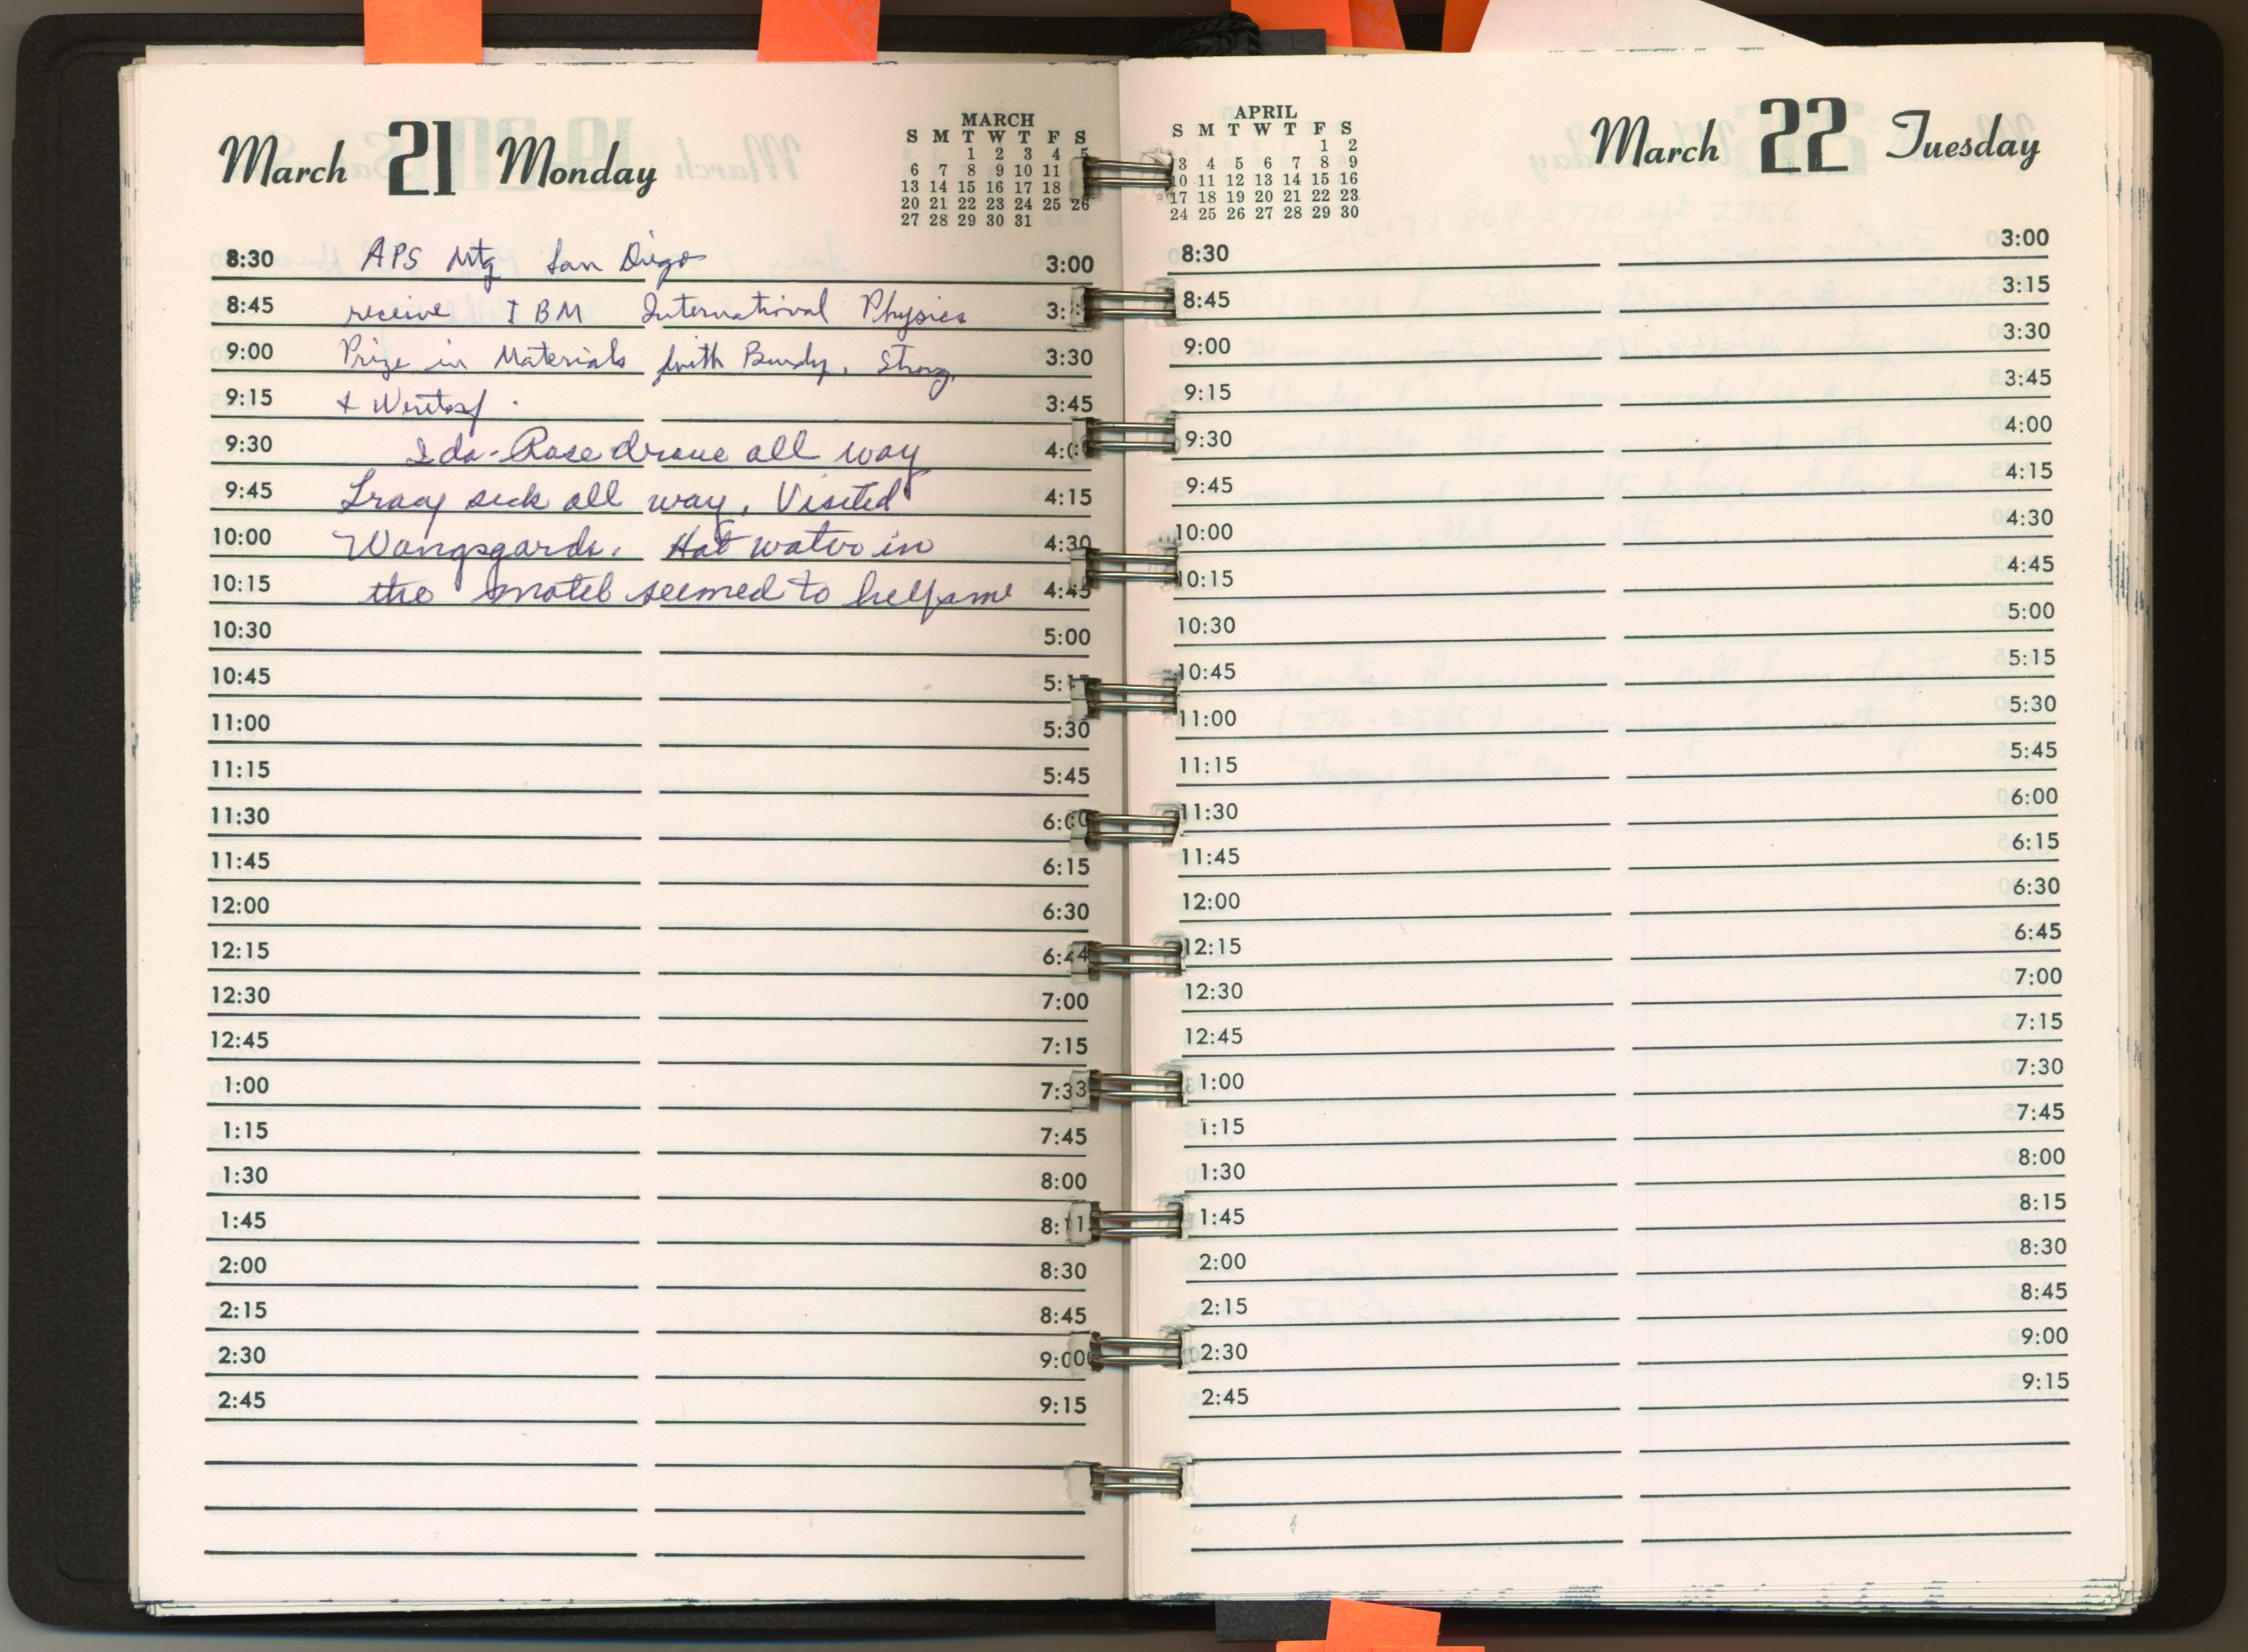 March 21 Monday
MARCH
S M T W T F S
1 2 3 4 5
6 7 8 9 10 11
13 14 15 16 17 18
20 21 22 23 24 25 26
27 28 29 30 31
8:30 APS Mtg San Diego 3:00
8:45 receive IBM International Physics
9:00 Prize in Materials with Bundy, Strong, 3:30
9:15 & Wentorf. 3:45
9:30 Ida-Rose drove all way
9:45 Tracy sick all way. Visited 4:15
10:00 Wangsgards. Hot water in 4:30
10:15 the motel seemed to help me 4:45
10:30 5:00
10:45
11:00 5:30
11:15 5:45
11:30 6:00
11:45 6:15
12:00 6:30
12:15 6:44
12:30 7:00
12:45 7:15
1:00 7:33
1:15 7:45
1:30 8:00
1:45
2:00 8:30
2:15 8:45
2:30 9:00
2:45 9:15
APRIL
S M T W T F S
1 2
3 4 5 6 7 8 9
10 11 12 13 14 15 16
17 18 19 20 21 22 23
24 25 26 27 28 29 30
March 22 Tuesday
8:30 3:00
8:45 3:15
9:00 3:30
9:15 3:45
9:30 4:00
9:45 4:15
10:00 4:30
10:15 4:45
10:30 5:00
10:45 5:15
11:00 5:30
11:15 5:45
11:30 6:00
11:45 6:15
12:00 6:30
12:15 6:45
12:30 7:00
12:45 7:15
1:00 7:30
1:15 7:45
1:30 8:00
1:45 8:15
2:00 8:30
2:15 8:45
2:30 9:00
2:45 9:15